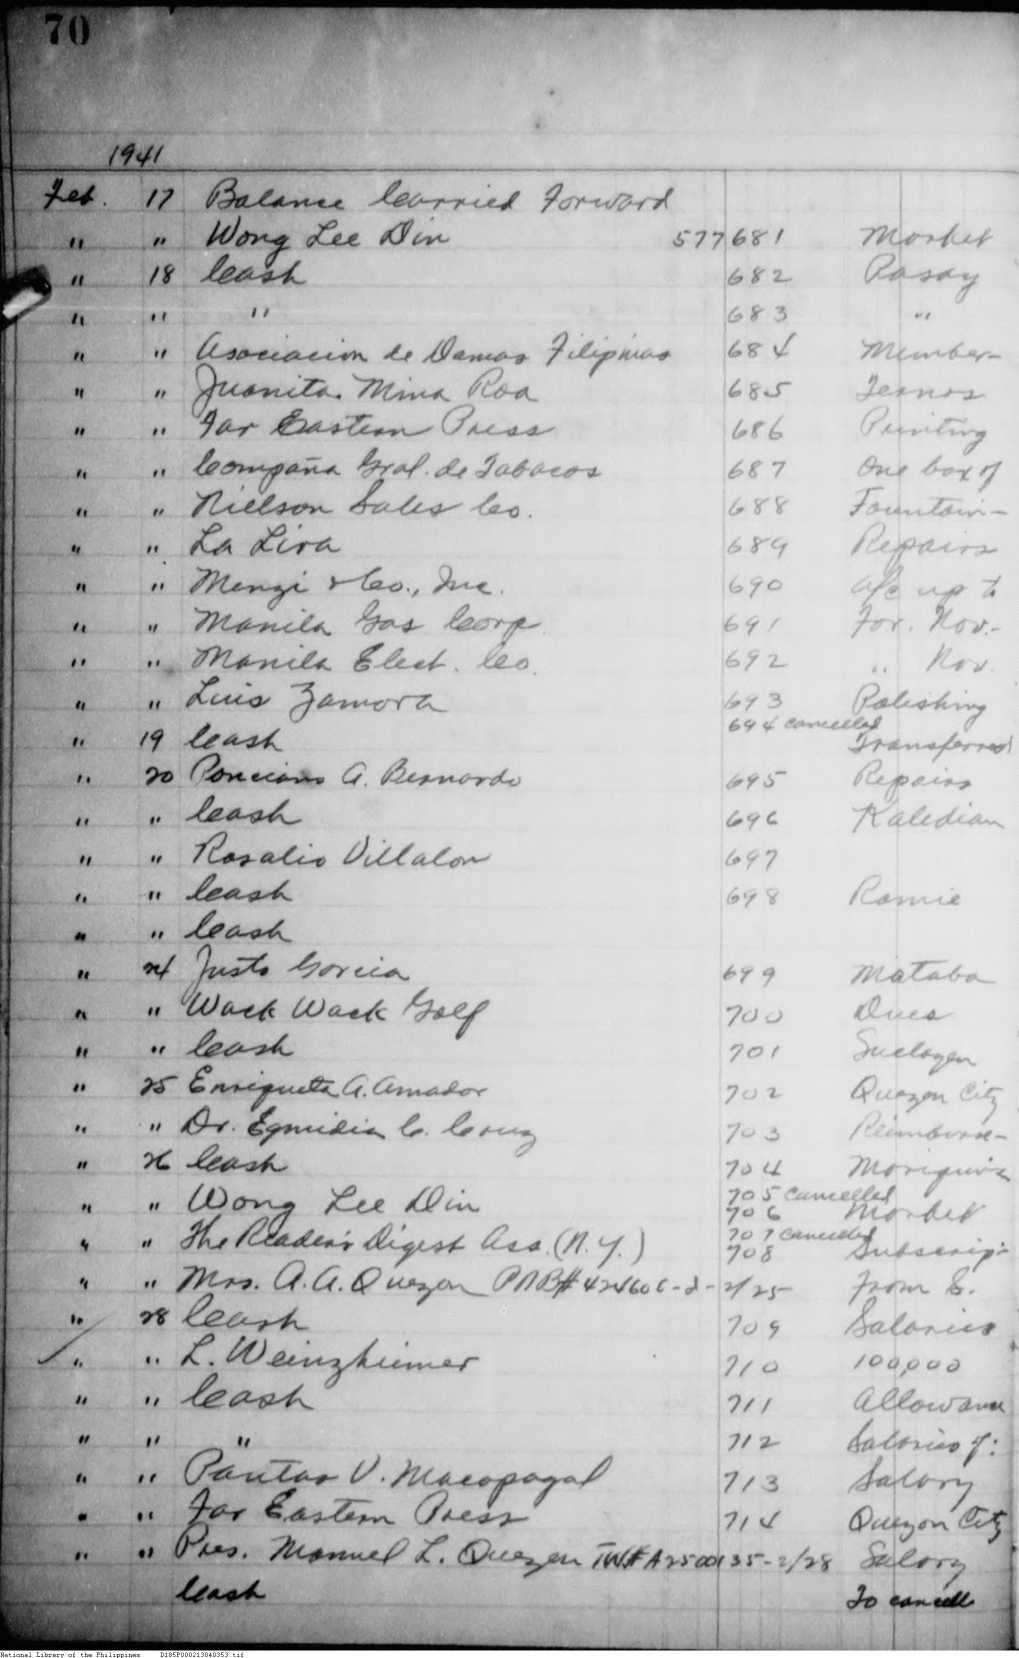 70
1941
Feb. 17 Balance Carried Forward
" " Wong Lee Din 577681 Market
" 18 Cash 682 Pasay
" " " 683 "
" " Asociacion de Damas Filipinas 684 Member-
" " Juanita Mina Roa 685 Ternos
" " Far Eastern Press 686 Printing
" " Compaña Gral. de Tabacos 687 One box of
" " Nielson Sales Co. 688 Fountain-
" " La Lira 689 Repairs
" " Menzi & Co., Inc. 690 a/c up to
" " Manila Gas Corp. 691 For. Nov.-
" " Manila Elect. Co. 692 " Nov.
" " Luis Zamora 693 Polishing
694 cancelled
" 19 Cash Transferred
" 20 Ponciano A. Bernardo 695 Repairs
" " Cash 696 Kaledian
" " Rosalio Villalon 697
" " Cash 698 Ramie
" " Cash
" 24 Justo Garcia 699 Mataba
" " Wack Wack Golf 700 Dues
" " Cash 701 Suclayen
" 25 Enriqueta A. Amador 702 Quezon City
" " Dr. Egmidia C. Cruz 703 Reimburse-
" 26 Cash 704 Mariquina
705 cancelled
" " Wong Lee Din 706 Market
707 cancelled
" " The Reader's Digest Ass. (N.Y.) 708 Subscrip-
" " Mrs. A. A. Quezon PNB# 424606-d-2/25- from S.
" 28 Cash 709 Salaries
" " L. Weinzheimer 710 100,000
" " Cash 711 Allowance
" " " 712 Salaries of:
" " Pantas V. Macapagal 713 Salary
" " Far Eastern Press 714 Quezon City
" " Pres. Manuel L. Quezon TW# A2500135-2/28 Salary
Cash To cancell
National Library of the Philippines D185P000213040353.tif